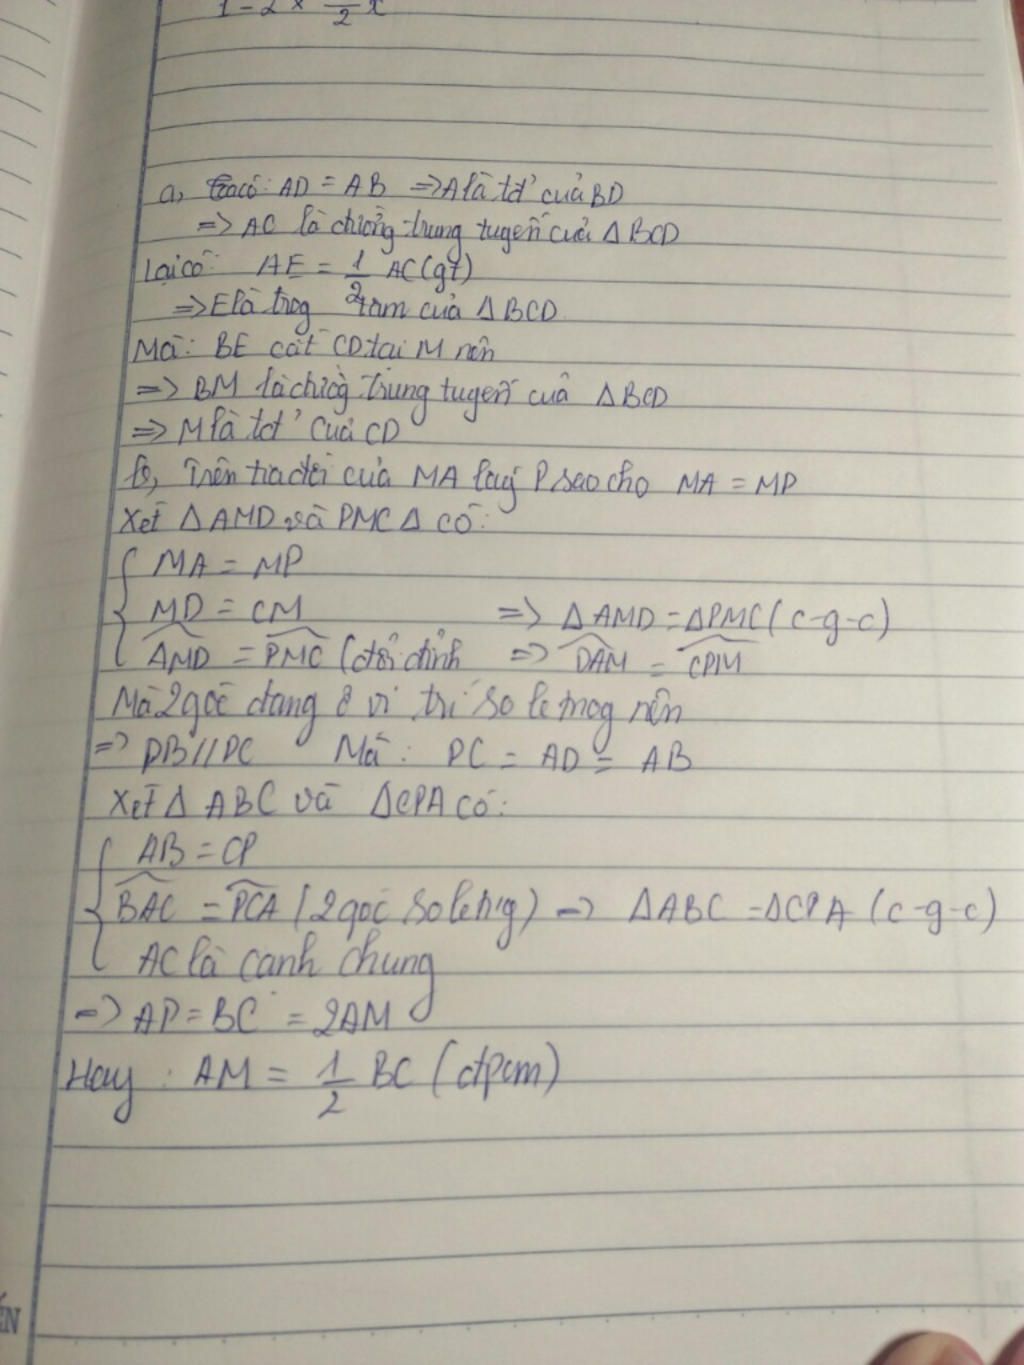 1-2×\frac{}{2}x
a, Ta có: AD = AB => A là tđ' của BD
=> AC là đường trung tuyến của Δ BCD
Lại có: AE = \frac{1}{2} AC (gt)
=> E là trọg tâm của Δ BCD
Mà: BE cắt CD tại M nên
=> BM là đườg trung tuyến của Δ BCD
=> M là tđ' của CD
b, Trên tia đối của MA lấy P sao cho MA = MP
Xét Δ AMD và PMC Δ có:
MA = MP
MD = CM => Δ AMD = ΔPMC (c-g-c)
AMD = PMC (đối đỉnh => DAM = CPM
Mà 2 góc đang ở vị trí so le trog nên
=> DB // PC Mà: PC = AD = AB
Xét Δ ABC và ΔCPA có:
AB = CP
BAC = PCA (2 góc so le trg) => ΔABC = ΔCPA (c-g-c)
AC là cạnh chung
=> AP = BC = 2AM
Hay: AM = \frac{1}{2} BC (đpcm)